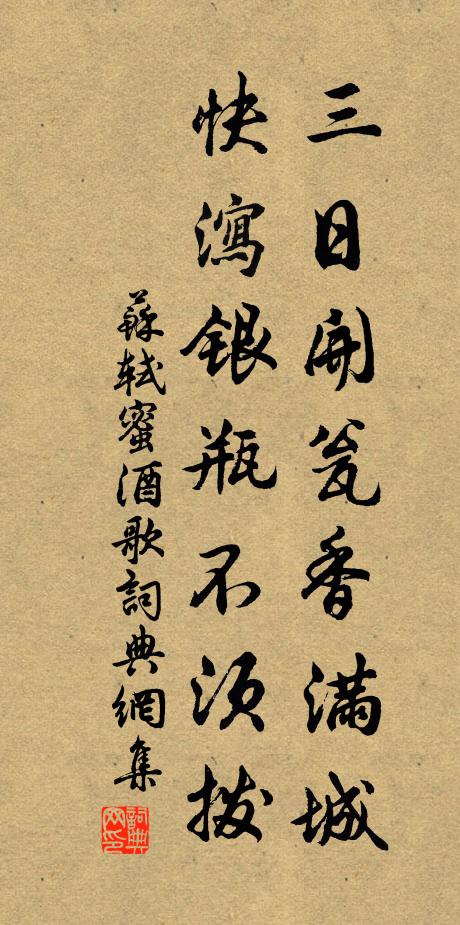 三日開瓮香滿城
快瀉銀瓶不須撥
蘇軾蜜酒歌詞典網集
詞典网印